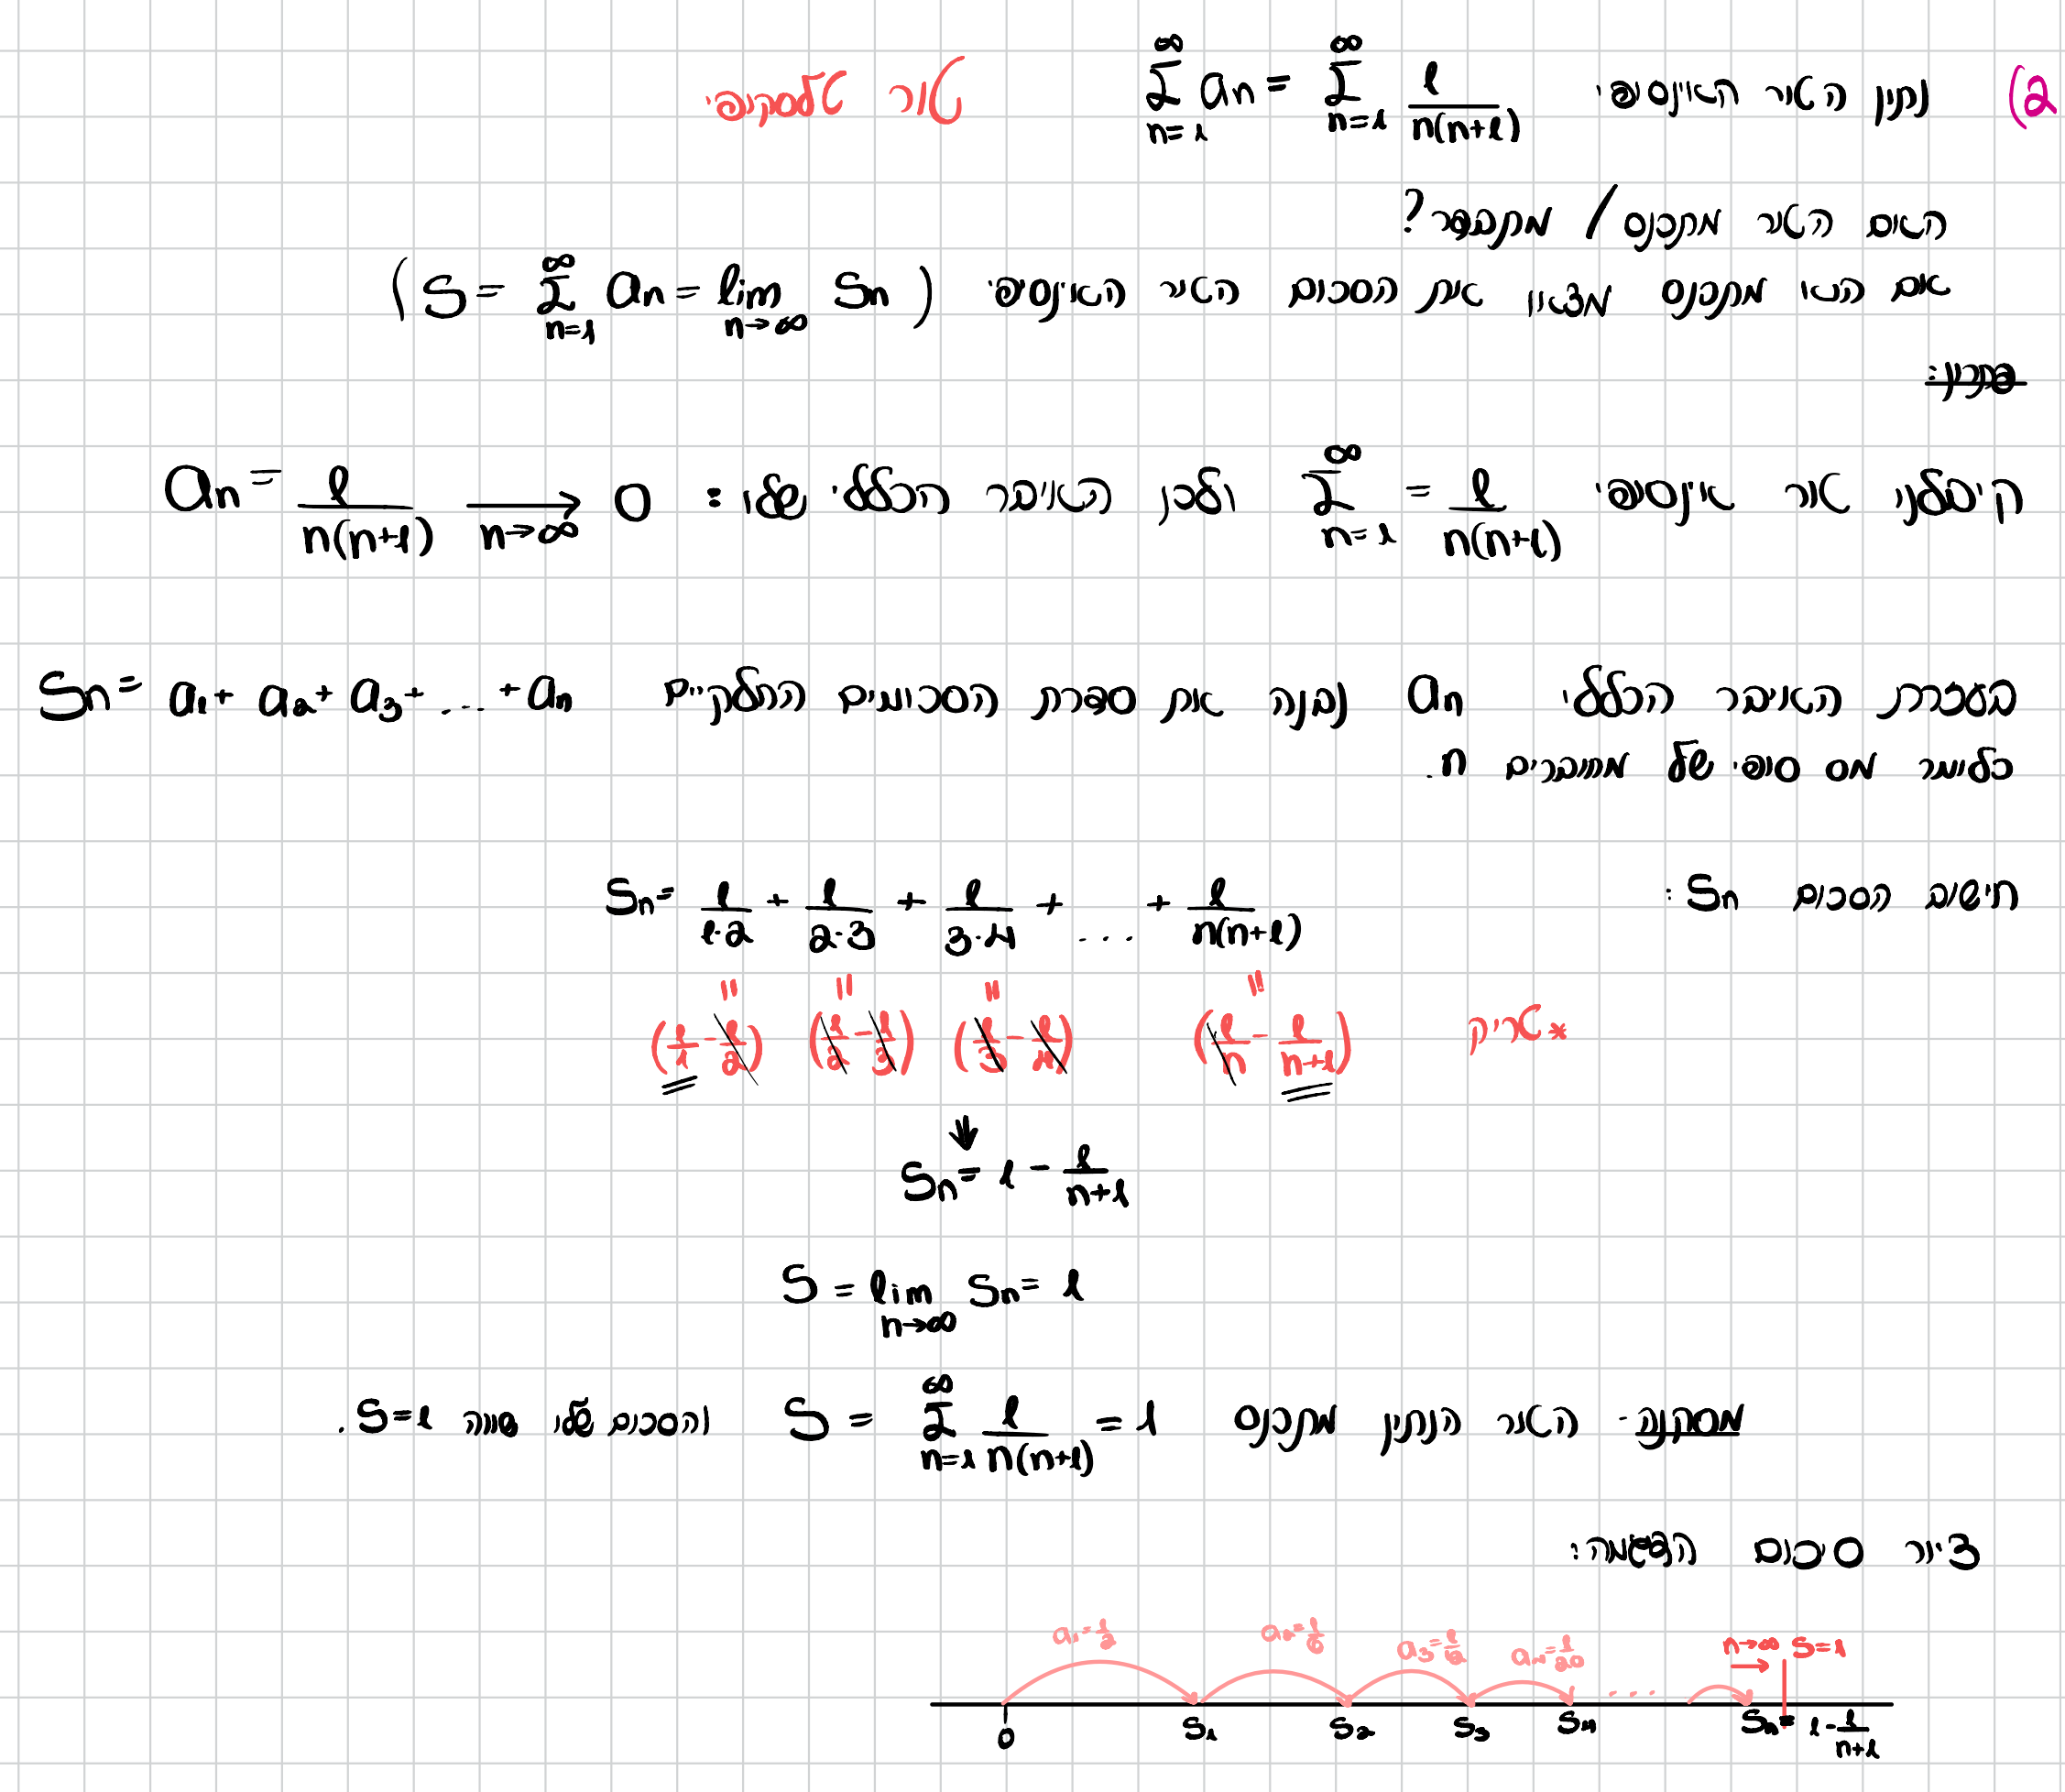 2) נתון הטור האינסופי $\sum_{n=1}^{\infty} a_n = \sum_{n=1}^{\infty} \frac{1}{n(n+1)}$ טור טלסקופי
האם הטור מתכנס / מתבדר?
אם הוא מתכנס מצאו את הסכום הטור האינסופי $(S = \sum_{n=1}^{\infty} a_n = \lim_{n \to \infty} S_n)$
פתרון:
קיבלנו טור אינסופי $\sum_{n=1}^{\infty} = \frac{1}{n(n+1)}$ ולכן האיבר הכללי שלו: $a_n = \frac{1}{n(n+1)} \xrightarrow[n \to \infty]{} 0$
בעזרת האיבר הכללי $a_n$ נבנה את סדרת הסכומים החלקיים $S_n = a_1 + a_2 + a_3 + \dots + a_n$
כלומר מס סופי של מחוברים n.
חישוב הסכום $S_n$: $S_n = \frac{1}{1 \cdot 2} + \frac{1}{2 \cdot 3} + \frac{1}{3 \cdot 4} + \dots + \frac{1}{n(n+1)}$
= = = =
*טריק $(\frac{1}{1} - \frac{1}{2})$ $(\frac{1}{2} - \frac{1}{3})$ $(\frac{1}{3} - \frac{1}{4})$ $(\frac{1}{n} - \frac{1}{n+1})$
⇓
$S_n = 1 - \frac{1}{n+1}$
$S = \lim_{n \to \infty} S_n = 1$
מסקנה- הטור הנתון מתכנס $S = \sum_{n=1}^{\infty} \frac{1}{n(n+1)} = 1$ והסכום שלו שווה $S = 1$.
ציור סיכום הדוגמה:
$a_1 = \frac{1}{2}$ $a_2 = \frac{1}{6}$ $a_3 = \frac{1}{12}$ $a_4 = \frac{1}{20}$ .... $n \to \infty$ → $S = 1$
0 $S_1$ $S_2$ $S_3$ $S_4$ $S_n = 1 - \frac{1}{n+1}$